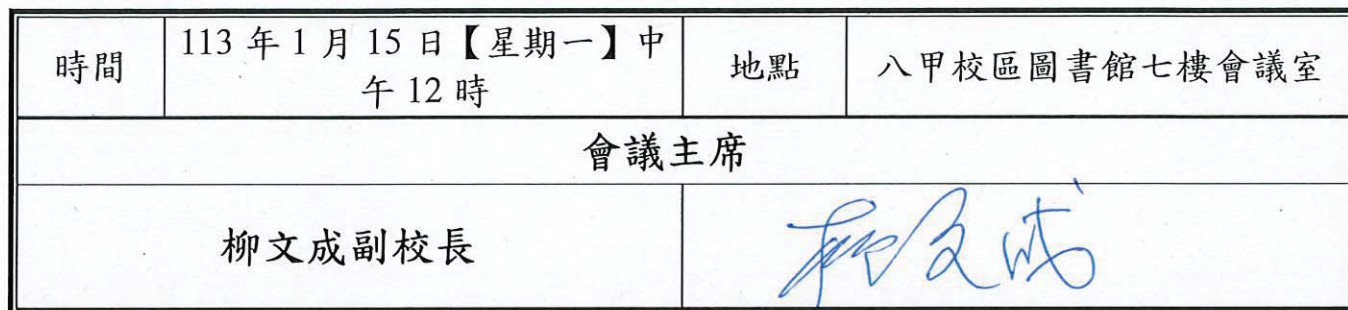 時間 113年1月15日【星期一】中 地點 八甲校區圖書館七樓會議室
午12時
會議主席
柳文成副校長 柳文成